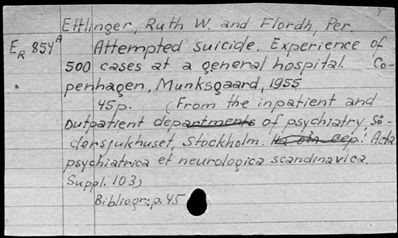 Ettlinger, Ruth W. and Flordh, Per.
ER 854A Attempted suicide. Experience of
500 cases at a general hospital. Co-
penhagen, Munksgaard, 1955
45p. (From the inpatient and
outpatient departments of psychiatry, Sö-
dersjukhuset, Stockholm. Acta
psychiatrica et neurologica scandinavica.
Suppl. 103)
Bibliogr.: p. 45